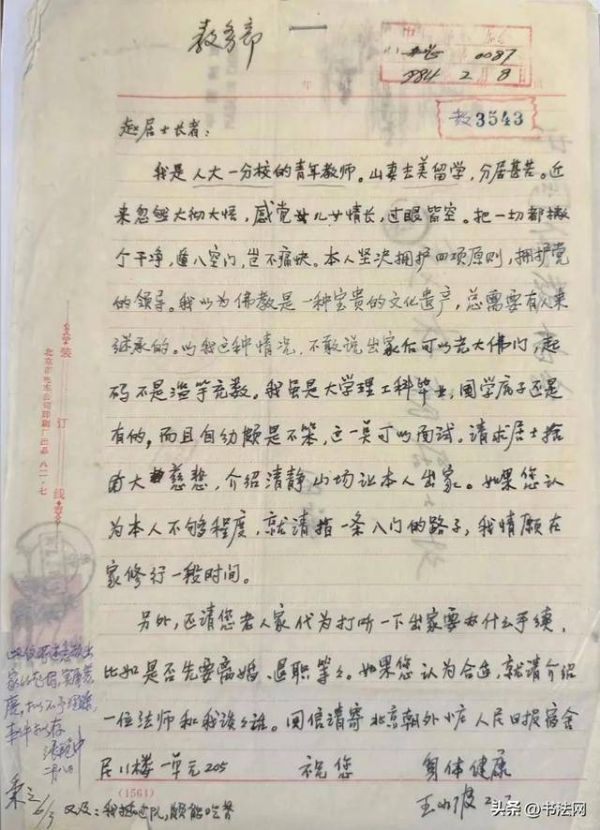 教务部
0087
1984 2月 8日
教3543
赵居士长者：
我是人大一分校的青年教师。山妻去美留学，分居甚苦。近
来忽然大彻大悟，感觉女儿女情长，过眼皆空。把一切都撇
个干净，遁入空门，岂不痛快。本人坚决拥护四项原则，拥护党
的领导。我以为佛教是一种宝贵的文化遗产，总需要有人来
继承的。以我这种情况，不敢说出家后可以光大佛门，起
码不是滥竽充数。我虽是大学理工科毕业，国学底子还是
有的，而且自幼颇是不笨，这一点可以面试。请求居士施
大慈悲，介绍清静山场让本人出家。如果您认
为本人不够程度，就请指一条入门的路子，我情愿在
家修行一段时间。
另外，还请您老人家代为打听一下出家要办什么手续，
比如是否先要离婚、退职等等。如果您认为合适，就请介绍
一位法师和我谈谈话。回信请寄北京朝外小庄人民日报宿舍
尼11楼一单元205 祝您 身体健康
王小波
又及：我插过队，颇能吃苦
装订线
北京市电车公司印刷厂出品 八二·七
(1561)
二月八日
6/3
头条 @书法网